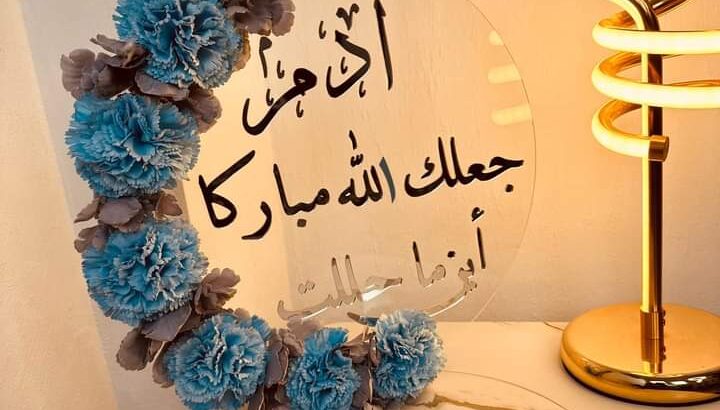 آدم
جعلك الله مباركا
أين ما حللت